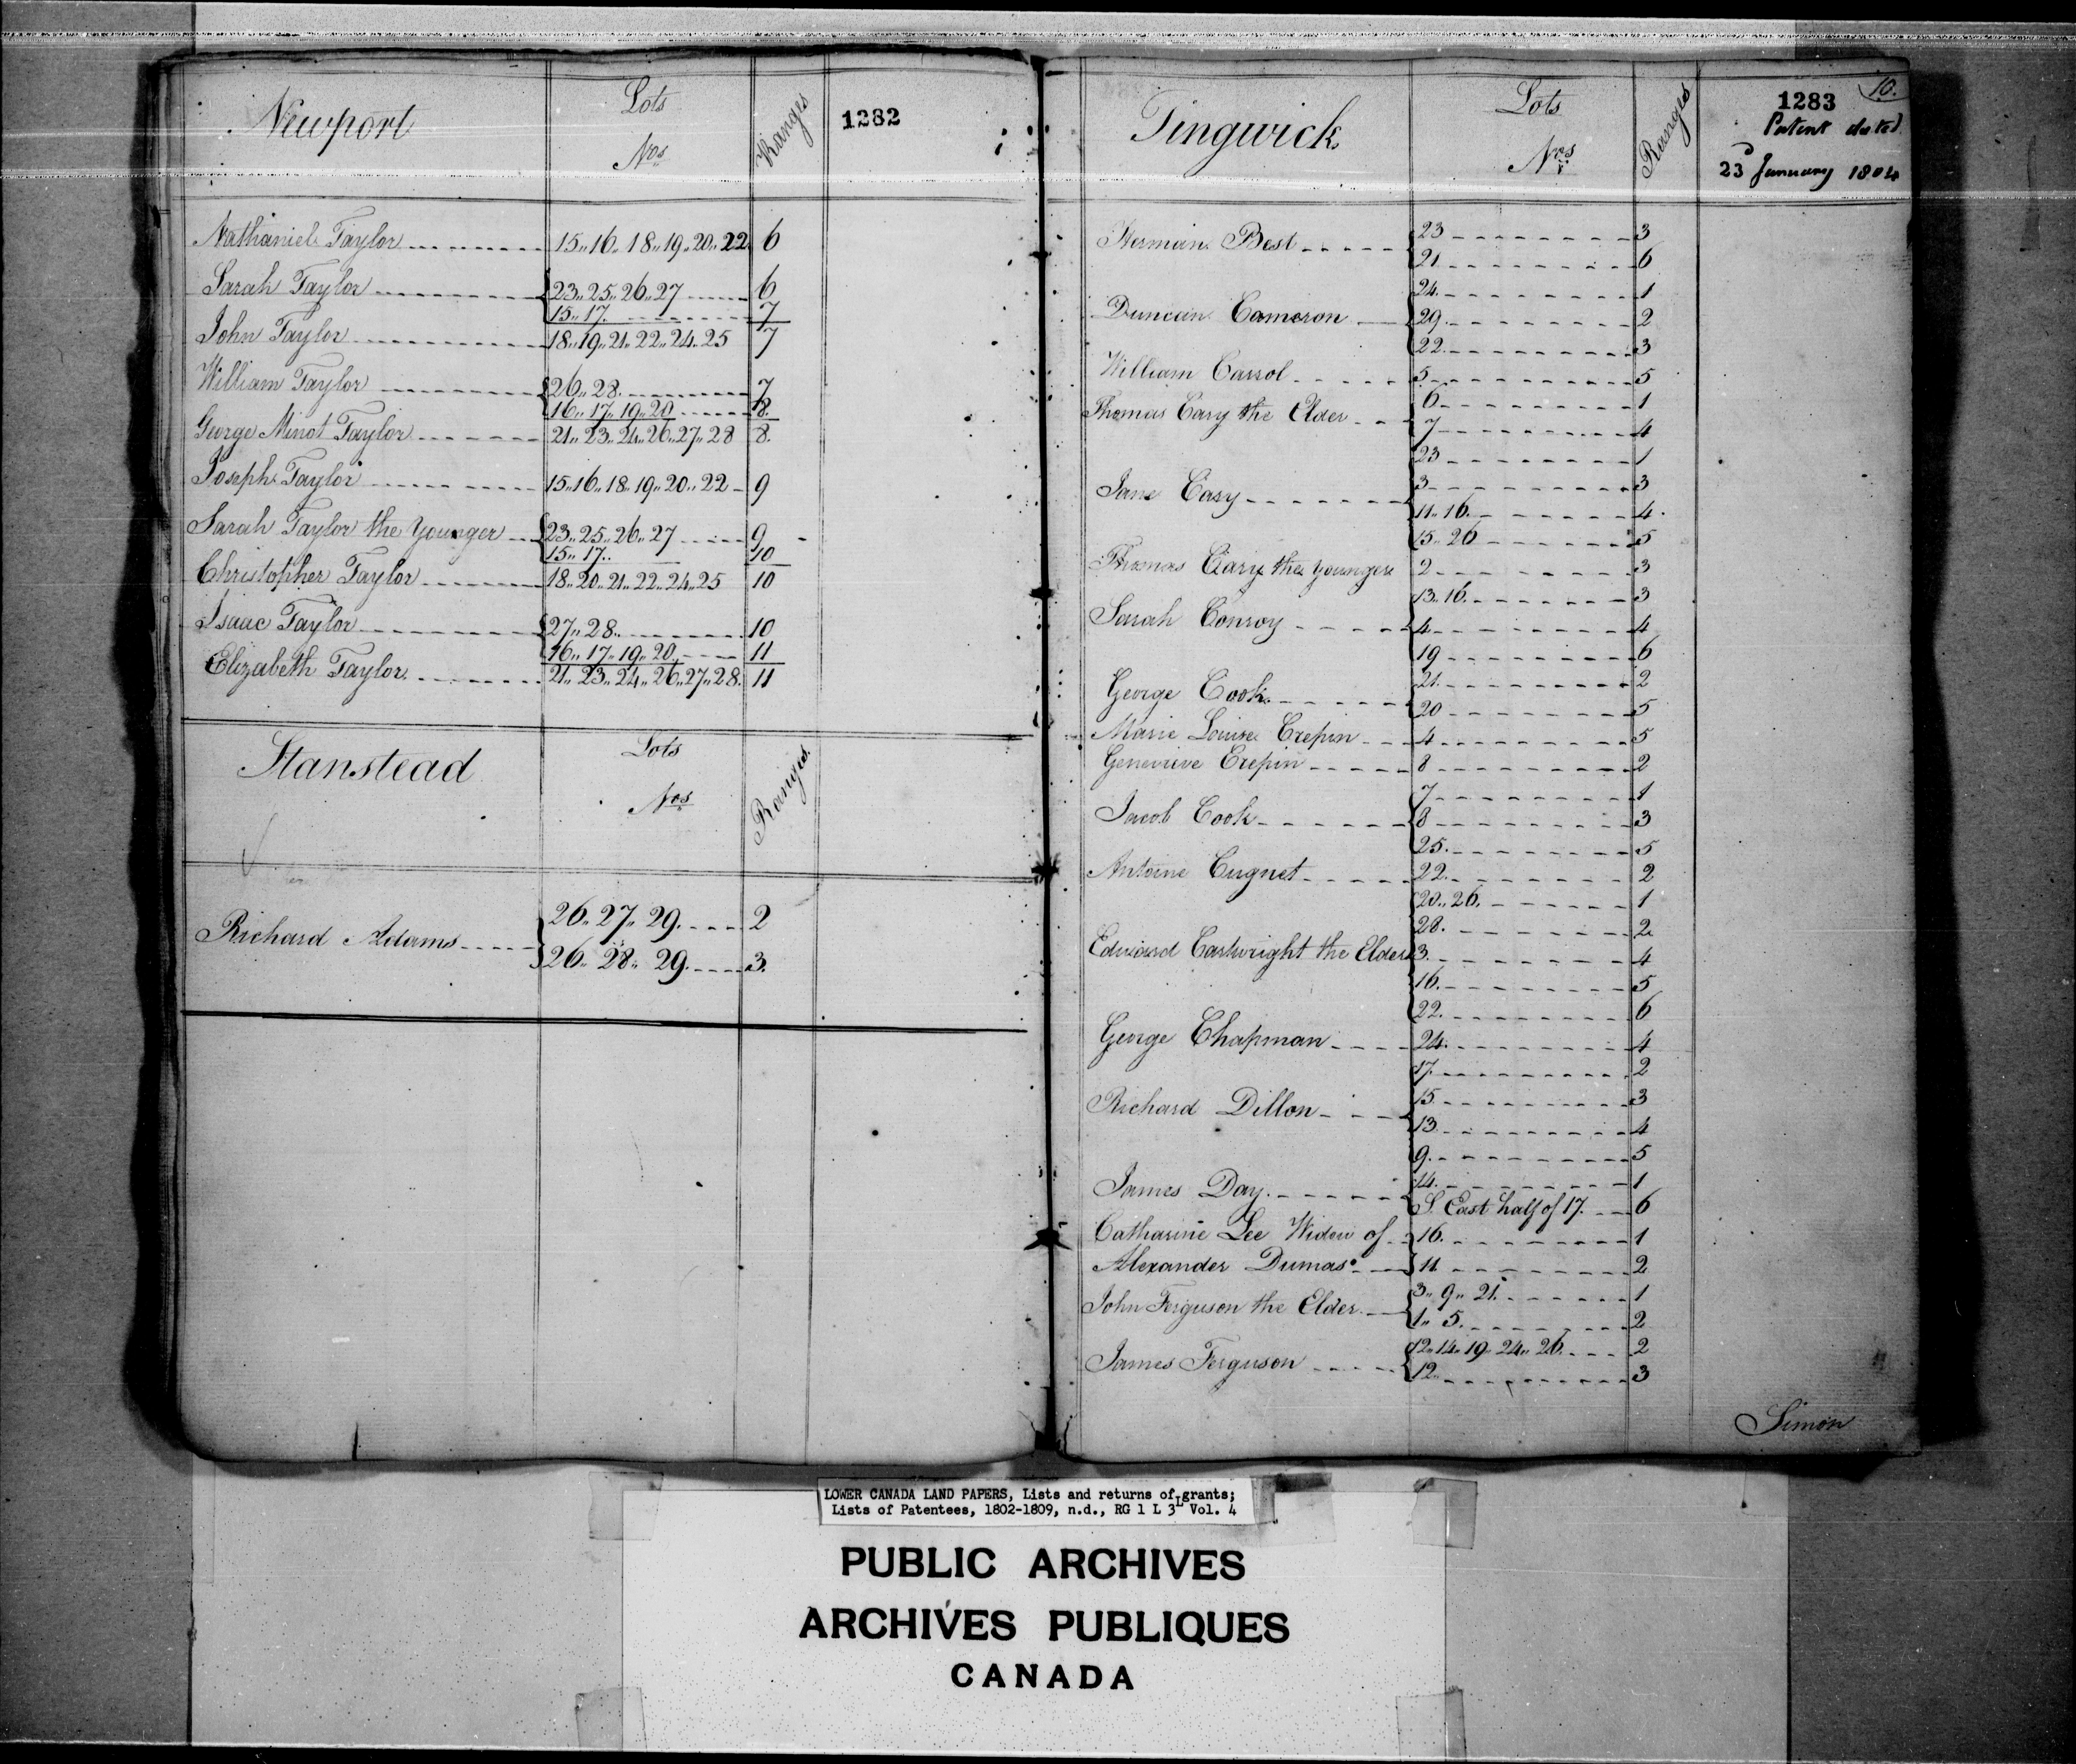 Newport Lots Nos Ranges 1282
Nathaniel Taylor 15 " 16 " 18 " 19 " 20 " 22 6
Sarah Taylor { 23 " 25 " 26 " 27 6
15 " 17 7
John Taylor 18 " 19 " 21 " 22 " 24 " 25 7
William Taylor { 26 " 28 7
16 " 17 " 19 " 20 8
George Minot Taylor 21 " 23 " 24 " 26 " 27 " 28 8
Joseph Taylor 15 " 16 " 18 " 19 " 20 " 22 9
Sarah Taylor the Younger { 23 " 25 " 26 " 27 9
15 " 17 10
Christopher Taylor 18 " 20 " 21 " 22 " 24 " 25 10
Isaac Taylor { 27 " 28 10
16 " 17 " 19 " 20 11
Elizabeth Taylor 21 " 23 " 24 " 26 " 27 " 28 11
Stanstead Lots Nos Ranges
Richard Adams { 26 " 27 " 29 2
26 " 28 " 29 3
Tingwick Lots Nos Ranges
10.
1283
Patent dated
23d January 1804
Herman Best { 23 3
21 6
Duncan Cameron { 24 1
29 2
22 3
William Carrol 5 5
Thomas Cary the Elder { 6 1
7 4
Jane Cary { 23 1
3 3
11 " 16 4
15 " 26 5
Thomas Cary the younger 2 3
Sarah Conroy { 13 " 16 3
4 4
19 6
George Cook { 21 2
20 5
Marie Louise Crepin 4 5
Genevieve Crepin 8 2
Jacob Cook { 7 1
8 3
25 5
Antoine Cugnet 22 2
Edward Cartwright the Elder { 20 " 26 1
28 2
3 4
16 5
22 6
George Chapman 24 4
Richard Dillon { 17 2
15 3
13 4
9 5
James Day { 14 1
S. East half of 17 6
Catharine Lee Widow of } 16 1
Alexander Dumas } 11 2
John Ferguson the Elder { 3 " 9 " 21 1
1 " 5 2
James Ferguson { 12 " 14 " 19 " 24 " 26 2
12 3
Simon
LOWER CANADA LAND PAPERS, Lists and returns of grants;
Lists of Patentees, 1802-1809, n.d., RG 1 L 3L Vol. 4
PUBLIC ARCHIVES
ARCHIVES PUBLIQUES
CANADA